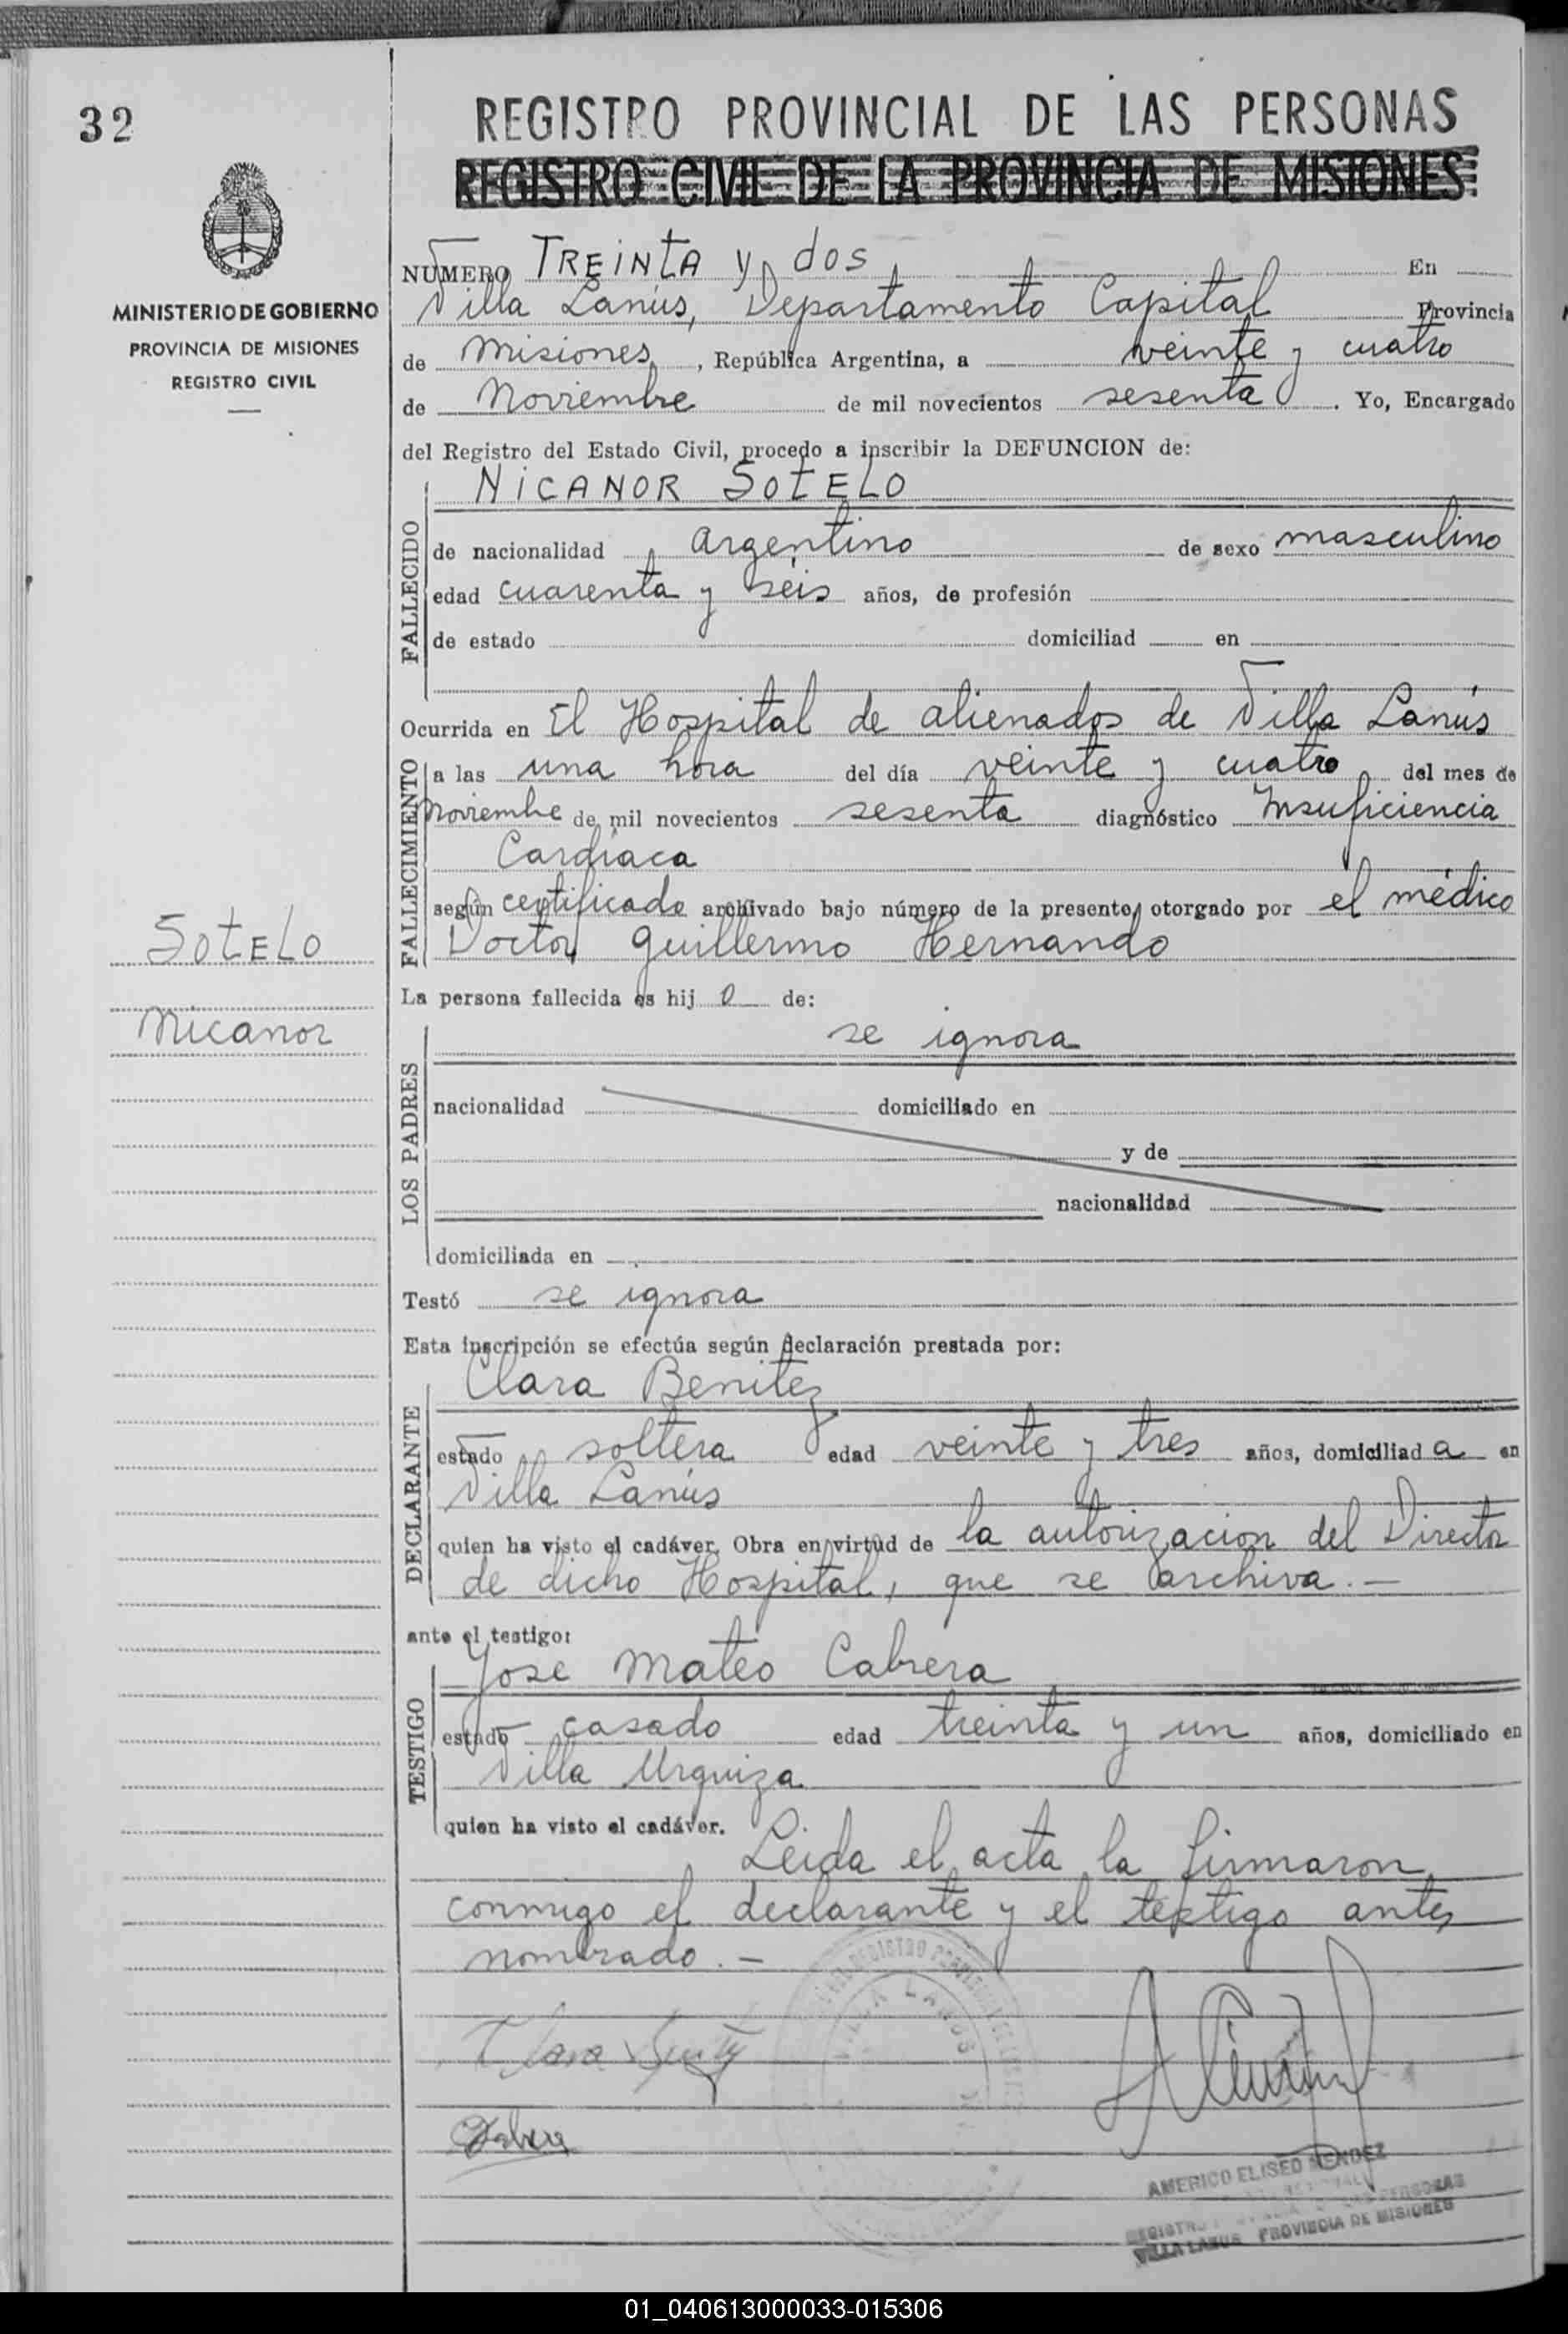 32
MINISTERIO DE GOBIERNO
PROVINCIA DE MISIONES
REGISTRO CIVIL
Sotelo
Nicanor
REGISTRO PROVINCIAL DE LAS PERSONAS
REGISTRO CIVIL DE LA PROVINCIA DE MISIONES
NUMERO TREINTA y dos En
Villa Lanús, Departamento Capital Provincia
de Misiones, República Argentina, a veinte y cuatro
de Noviembre de mil novecientos sesenta. Yo, Encargado
del Registro del Estado Civil, procedo a inscribir la DEFUNCION de:
NICANOR SOTELO
FALLECIDO
de nacionalidad argentino de sexo masculino
edad cuarenta y séis años, de profesión
de estado domiciliad en
Ocurrida en El Hospital de alienados de Villa Lanús
FALLECIMIENTO
a las una hora del día veinte y cuatro del mes de
Noviembre de mil novecientos sesenta diagnóstico Insuficiencia
Cardíaca
según certificado archivado bajo número de la presente, otorgado por el médico
Doctor Guillermo Hernando
La persona fallecida es hij o de:
LOS PADRES
se ignora
nacionalidad domiciliado en
y de
nacionalidad
domiciliada en
Testó se ignora
Esta inscripción se efectúa según declaración prestada por:
DECLARANTE
Clara Benitez
estado soltera edad veinte y tres años, domiciliad a en
Villa Lanús
quien ha visto el cadáver. Obra en virtud de la autorización del Director
de dicho Hospital, que se archiva.—
ante el testigo:
TESTIGO
Jose Mateo Cabrera
estado casado edad treinta y un años, domiciliado en
Villa Urquiza
quien ha visto el cadáver. Leida el acta la firmaron
conmigo el declarante y el testigo antes
nombrado.—
VILLA LANUS
AMERICO ELISEO MENDEZ
VILLA LANUS PROVINCIA DE MISIONES
01_040613000033-015306